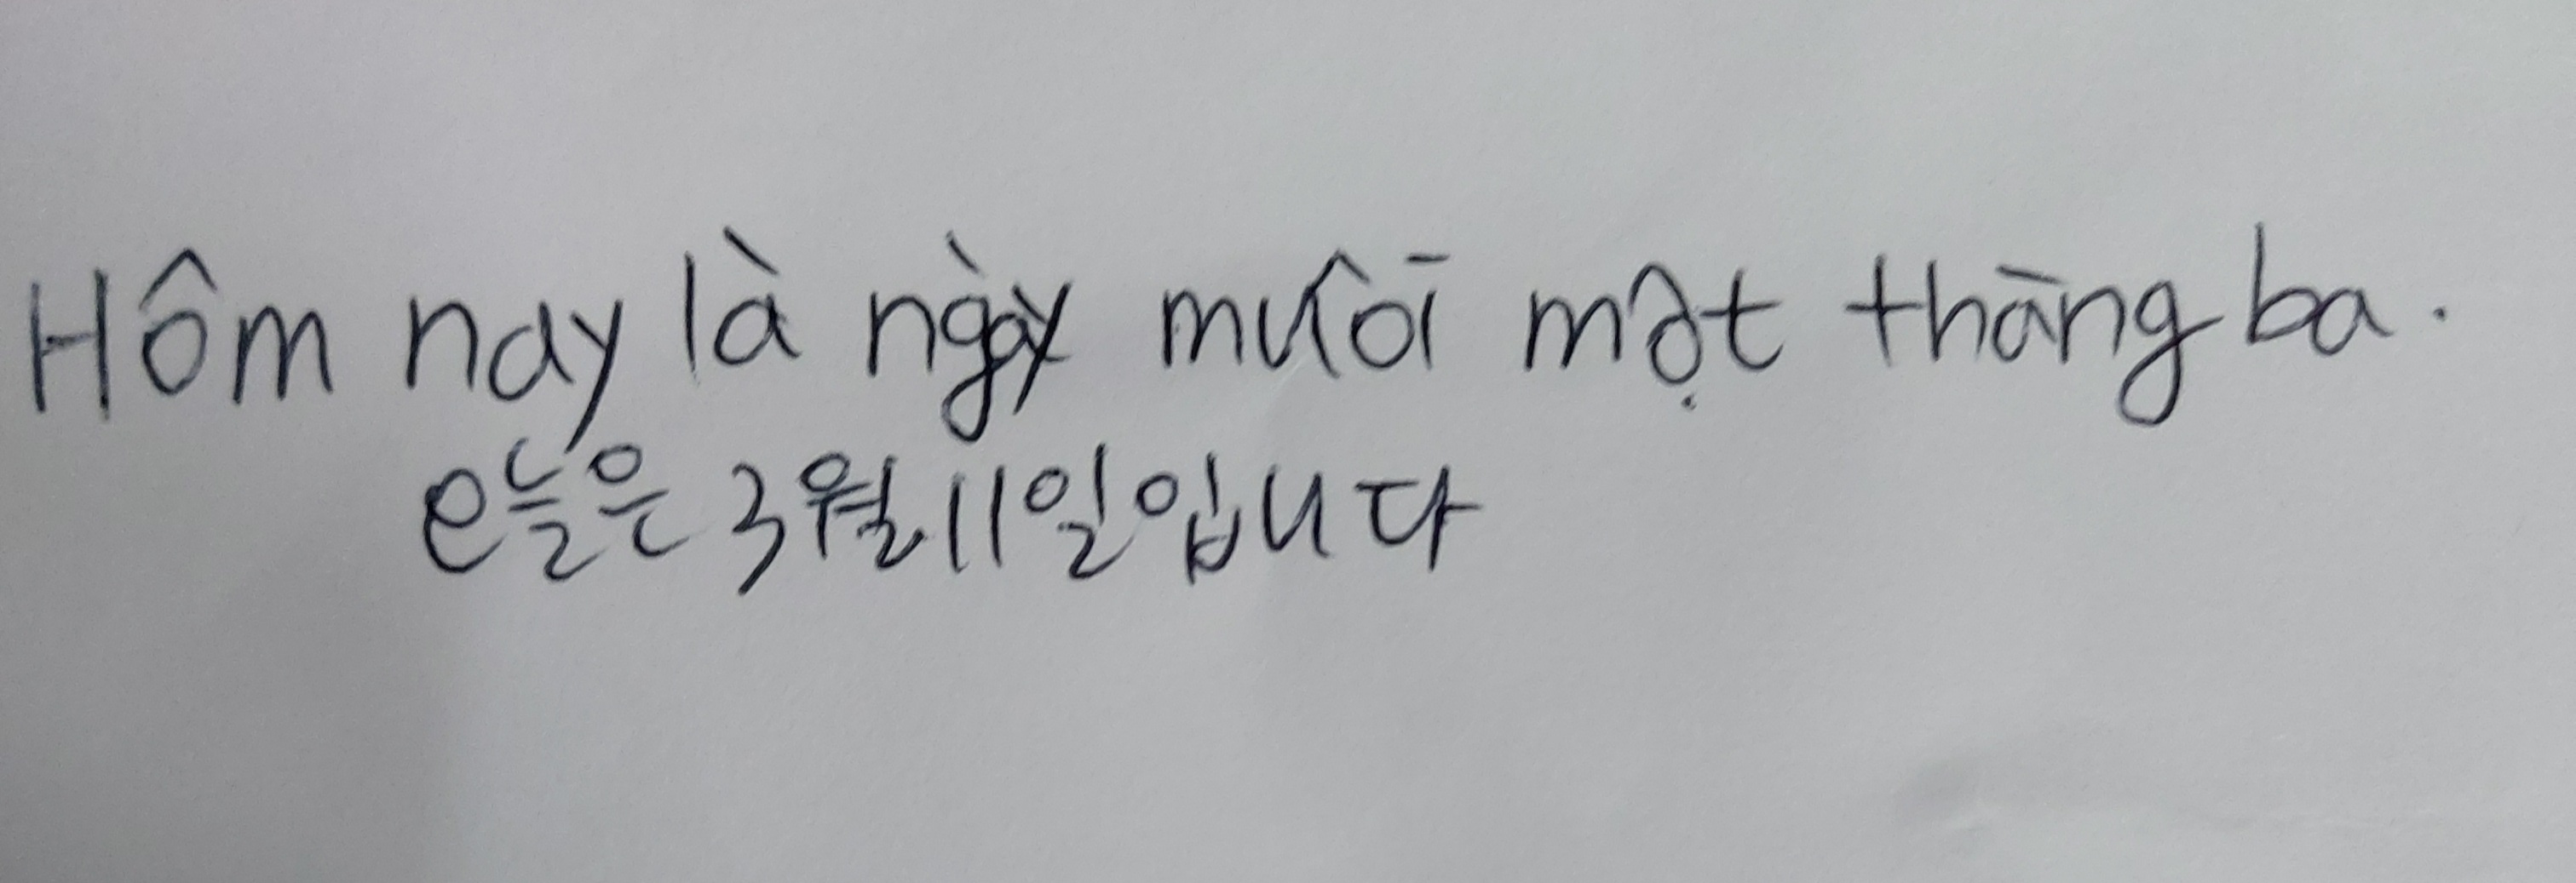 Hôm nay là ngày mười một tháng ba.
오늘은 3월 11일입니다